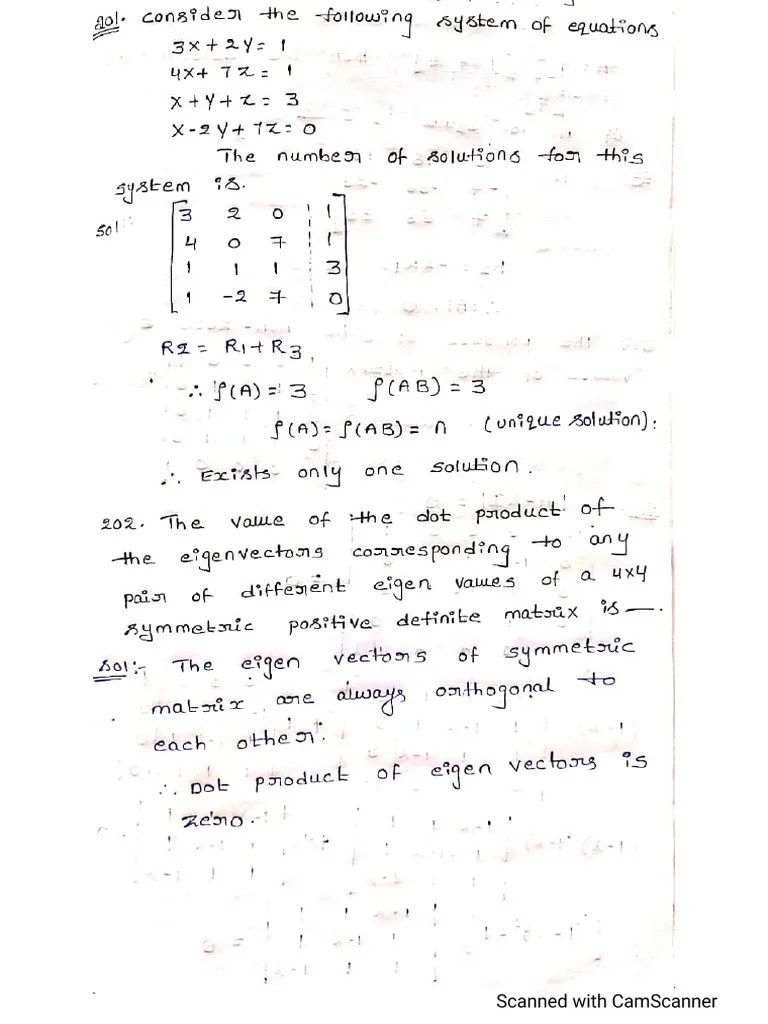 201. Consider the following system of equations
3x + 2y = 1
4x + 7z = 1
x + y + z = 3
x - 2y + 7z = 0
The number of solutions for this
system is.
Sol:
3 2 0 | 1
4 0 7 | 1
1 1 1 3
1 -2 7 | 0
R2 = R1 + R3,
∴ ρ(A) = 3 ρ(AB) = 3
ρ(A) = ρ(AB) = n (unique solution).
∴ Exists only one solution.
202. The value of the dot product of
the eigenvectors corresponding to any
pair of different eigen values of a 4x4
symmetric positive definite matrix is —.
Sol:- The eigen vectors of symmetric
matrix are always orthogonal to
each other.
∴ Dot product of eigen vectors is
zero.
Scanned with CamScanner